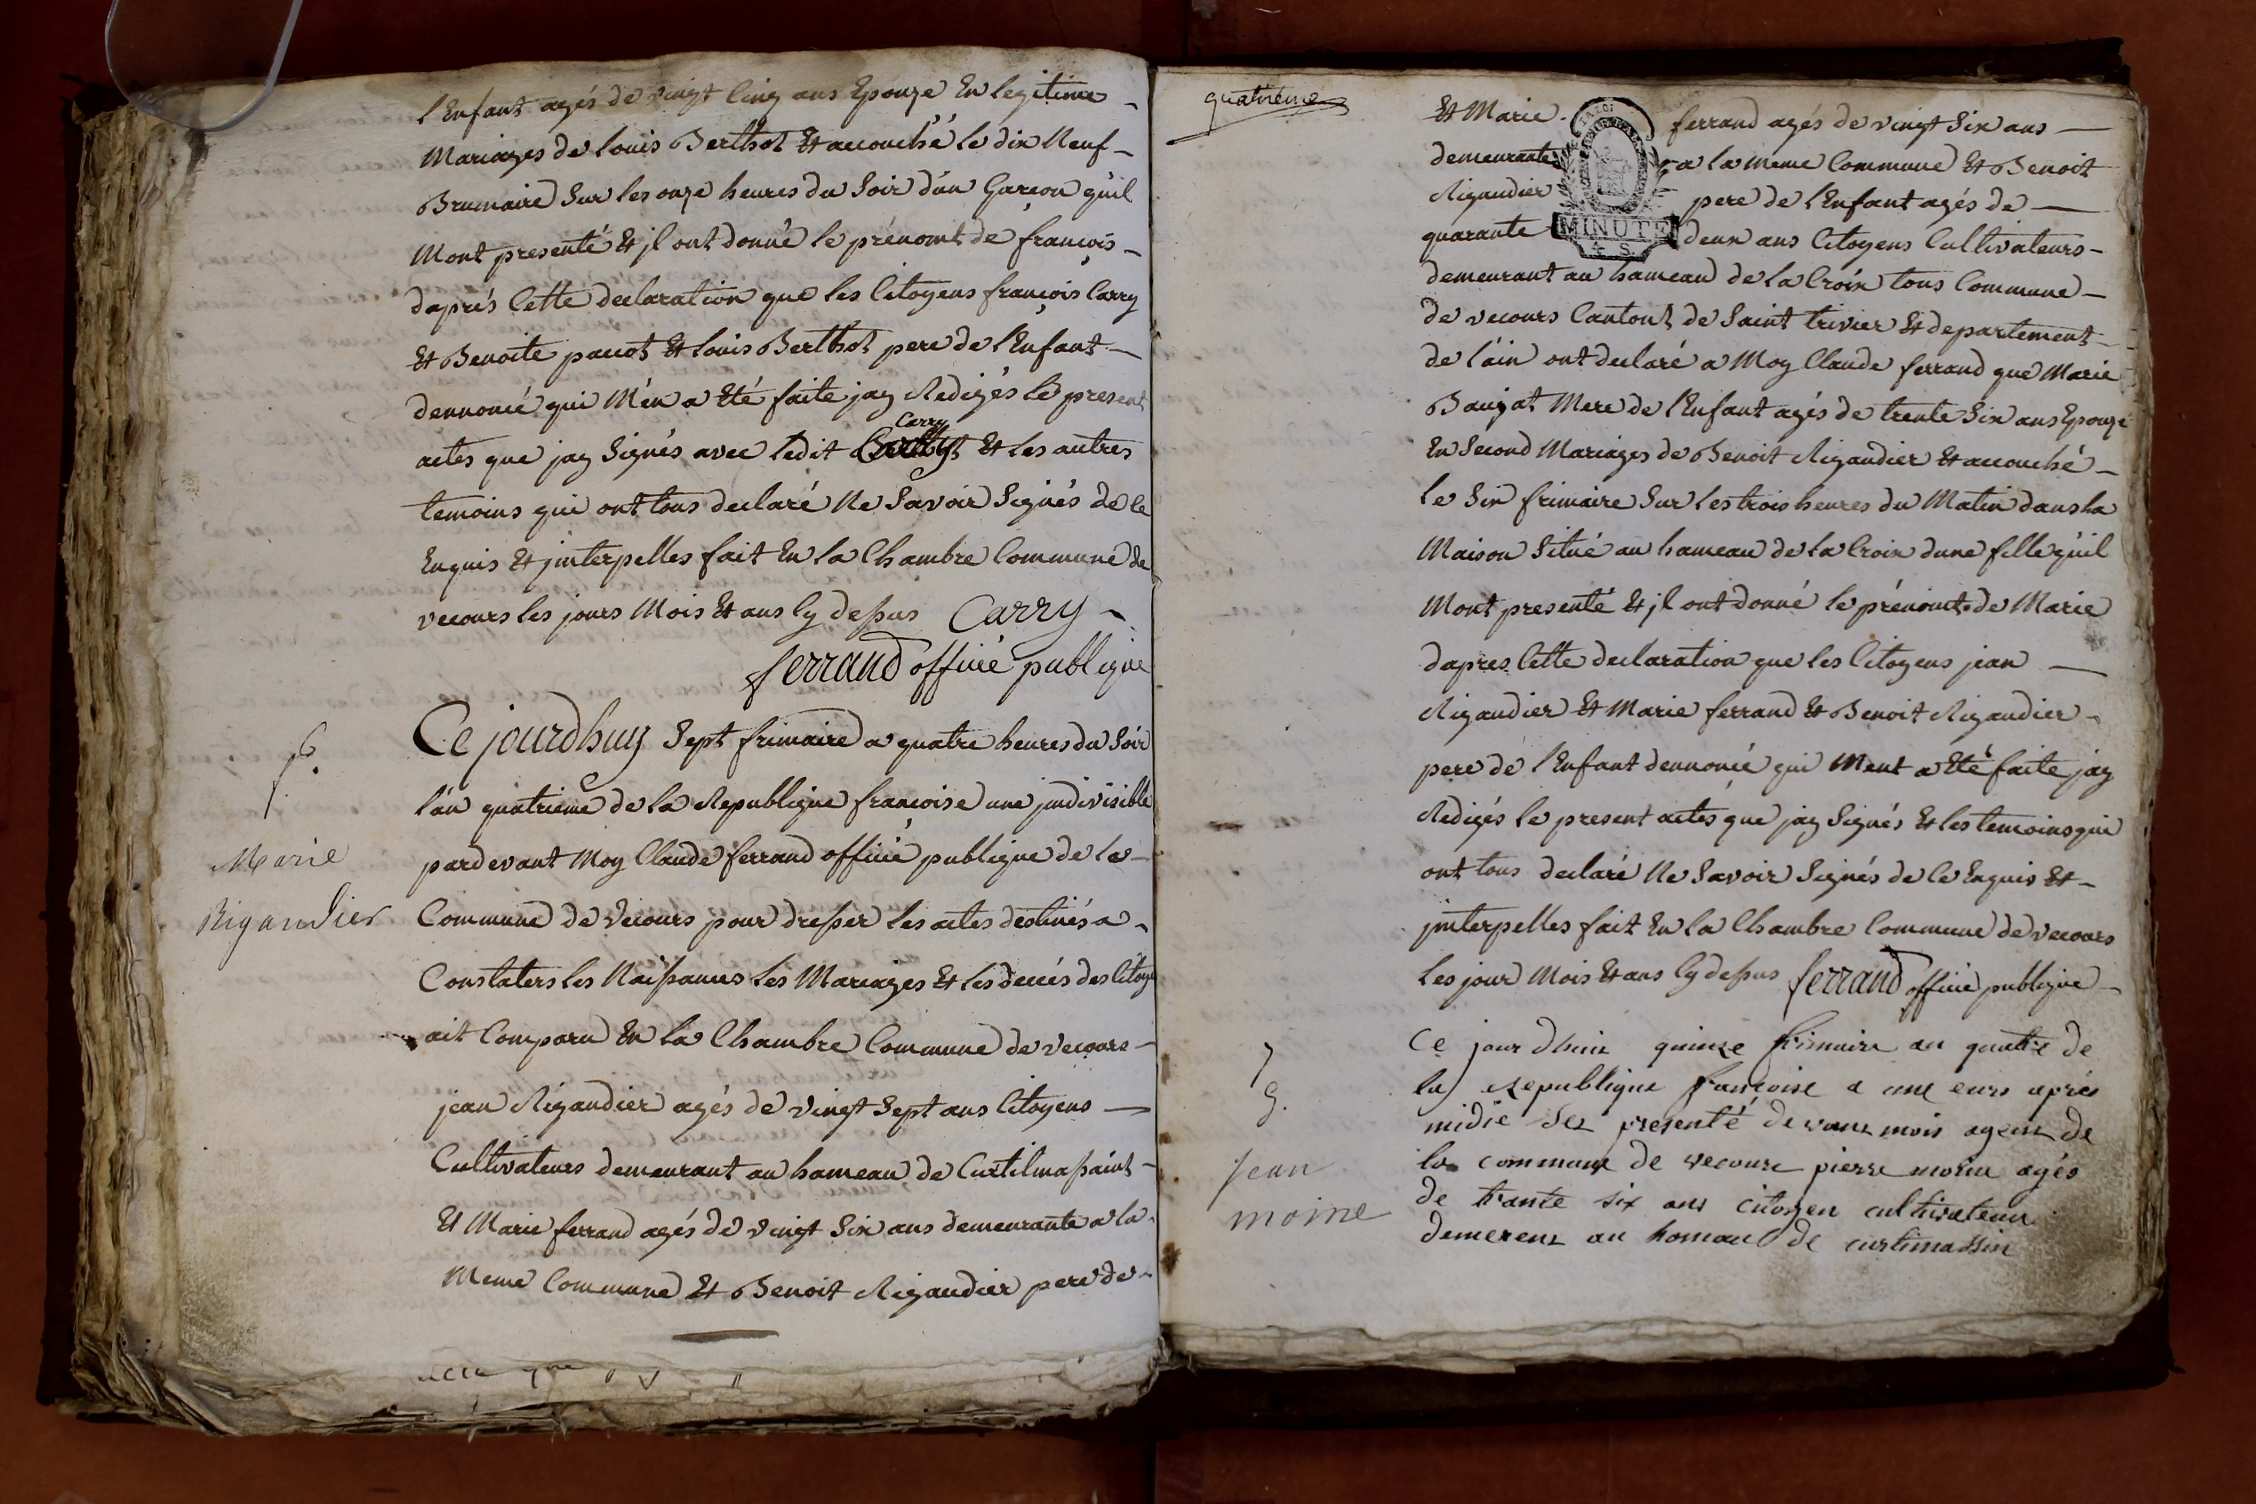 l'Enfant agés de vingt Cinq ans Epouze En legitime
Mariages de louis Berthot Et accouché le dix Neuf
Brumaire Sur les onze heures du Soir d'un Garçon qu'il
Mont presenté Et jl ont donné le prénomt de françois
daprés Cette declaration que les Citoyens françois Carry
Et Benoite pacot Et louis Berthot pere de l'Enfant
dennoncé qui M'en a Eté faite jay Redigés le present
Carry
actes que jay Signés avec ledit Et les autres
temoins qui ont tous declaré Ne Savoir Signés de Ce
Enquis Et jnterpelles fait En la Chambre Commune de
vecours les jours Mois Et ans Cy dessus Carry
ferrand officié publique
6.
f.
Marie
Rigaudier
Ce jourdhuy Sept frimaire a quatre heures du Soir
l'an quatrieme de la Republique francoise une jndivisible
pardevant Moy Claude ferrand officié publique de la
Commune de Vecours pour dresser les actes destinés a
Constaters les Naissances les Mariages Et les decés des Citoye
ait Comparu En la Chambre Commune de Vecours
jean Rigaudier agés de Vingt Sept ans Citoyens
Cultivateurs demeurant au hameau de Curtilmassaint
Et Marie ferrand agés de Vingt Six ans demeurante a la
Meme Commune Et Benoit Rigaudier pere de
quatrieme
Et Marie ferrand agés de vingt Six ans
demeurante a la meme Commune Et Benoit
Rigaudier pere de l'Enfant agés de
quarante deux ans Citoyens Cultivateurs
MINUTE
4 S
demeurant au hameau de la Croix tous Commune
de vecours Cantont de Saint trivier Et departement
de l'ain ont declaré a Moy Claude ferrand que Marie
Baujat Mere de l'Enfant agés de trente Six ans Epouze
En Second Mariages de Benoit Rigaudier Et accouché
le Six frimaire Sur les trois heures du Matin dans la
Maison Situé au hameau de la Croix dune fille qu'il
Mont presenté Et jl ont donné le prénomt de Marie
dapres Cette declaration que les Citoyens jean
Rigaudier Et Marie ferrand Et Benoit Rigaudier
pere de l'Enfant dennoncé qui Ment a Eté faite jay
Redigés le present actes que jay Signés Et les temoins qui
ont tous declaré Ne Savoir Signés de Ce Enquis Et
jnterpelles fait En la Chambre Commune de Vecours
les jour Mois Et ans Cy dessus ferrand officié publique
7
g.
jean
moine
Ce jour dhuix quinze frimaire an quatre de
la Republique francoise a une eurs aprés
midie sez presenté devant mois agent de
la commune de vecours pierre moine agés
de trante six ans citoyen cultivateur
demerent au homau de curtimassin